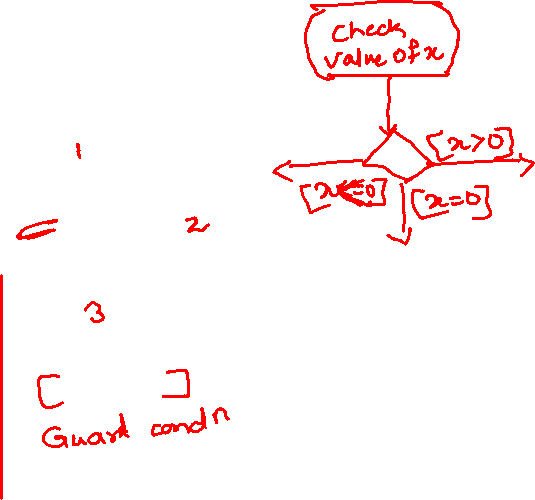 Check
value of x
1
[x>0]
[x<=0]
[x=0]
2
3
[ ]
Guard condn